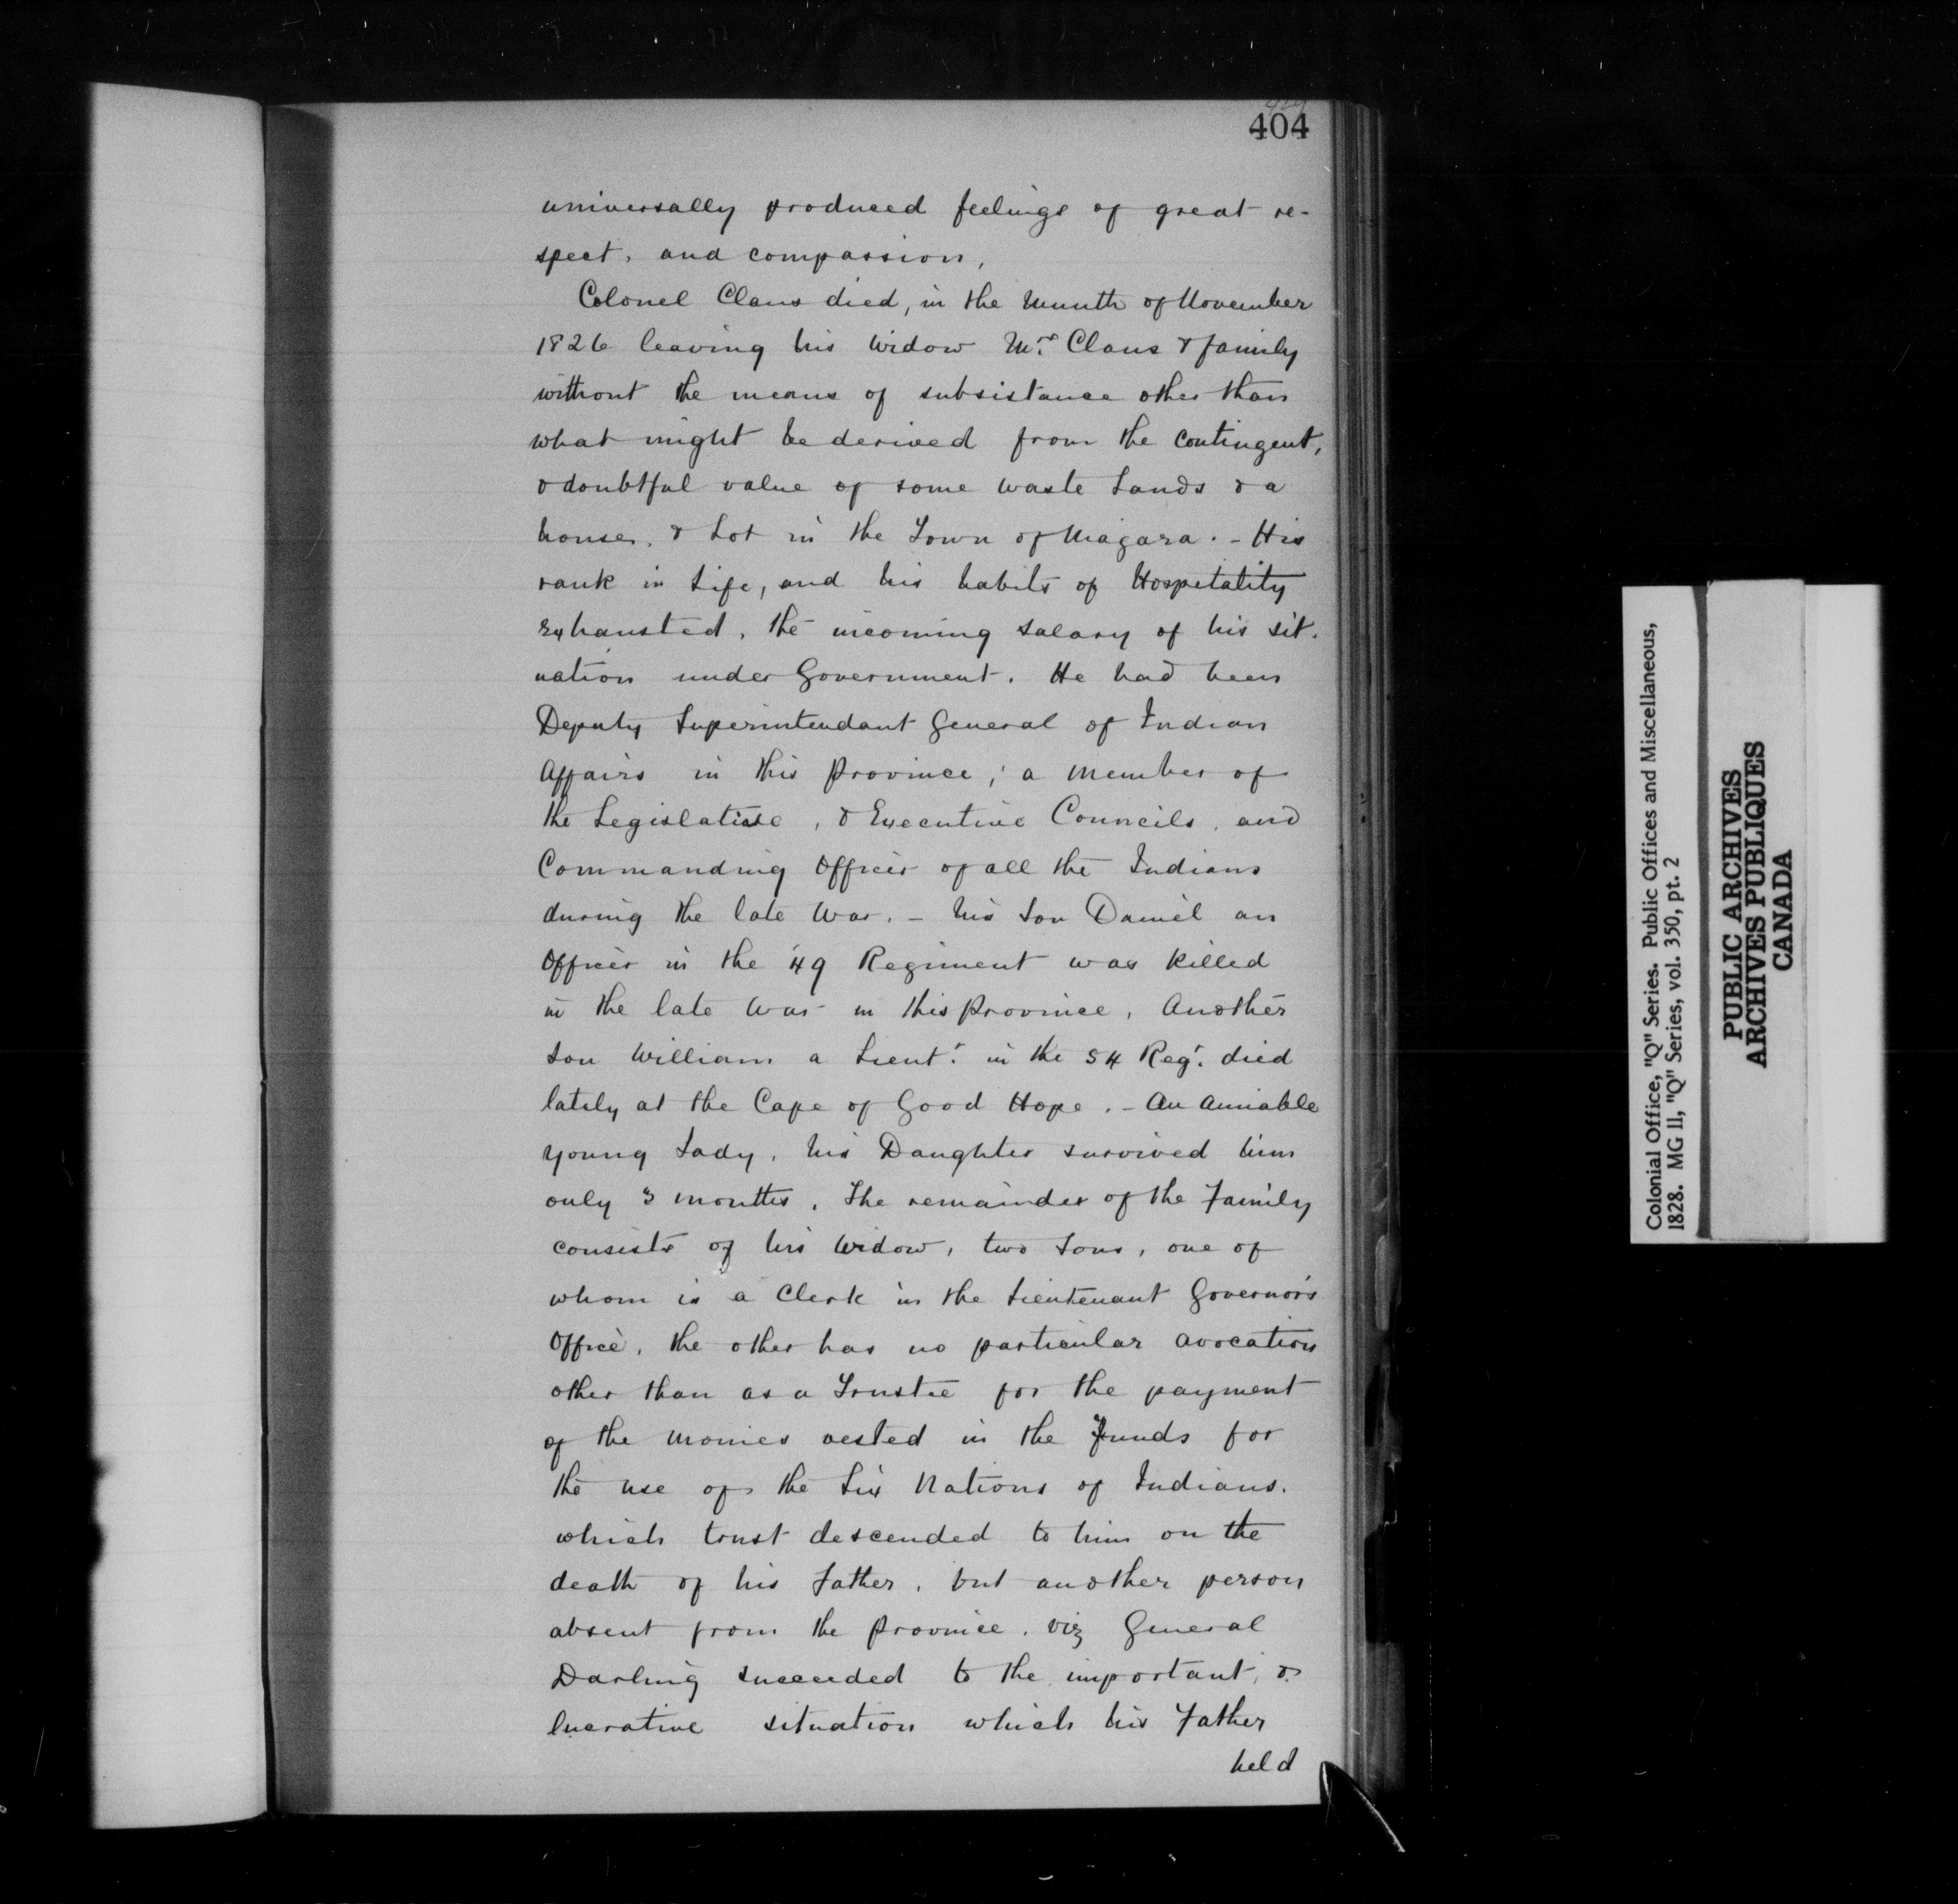 404
universally produced feelings of great re-
spect, and compassion,
Colonel Claus died, in the Month of November
1826 leaving his Widow Mrs. Claus & family
without the means of subsistance other than
what might be derived from the contingent,
& doubtful value of some waste Lands & a
house, & Lot in the Town of Niagara. - His
rank in Life, and his habits of Hospitality
exhausted, the incoming Salary of his sit-
uation under Government. He had been
Deputy Superintendant General of Indian
Affairs in this Province, a Member of
the Legislative, & Executive Councils, and
Commanding Officer of all the Indians
during the late War. - his Son Daniel an
Officer in the 49 Regiment was killed
in the late War in this Province, Another
Son William a Lieut. in the 54 Regt. died
lately at the Cape of Good Hope. - An Amiable
young Lady, his Daughter survived him
only 3 months, The remainder of the Family
consists of his Widow, two Sons, one of
whom is a Clerk in the Lieutenant Governor's
Office, the other has no particular avocation
other than as a Trustee for the payment
of the Monies vested in the Funds for
the use of the Six Nations of Indians.
which trust descended to him on the
death of his Father, but another person
absent from the Province, viz General
Darling succeeded to the important, &
lucrative situation which his Father
held
Colonial Office, "Q" Series. Public Offices and Miscellaneous,
1828. MG 11, "Q" Series, vol. 350, pt. 2
PUBLIC ARCHIVES
ARCHIVES PUBLIQUES
CANADA